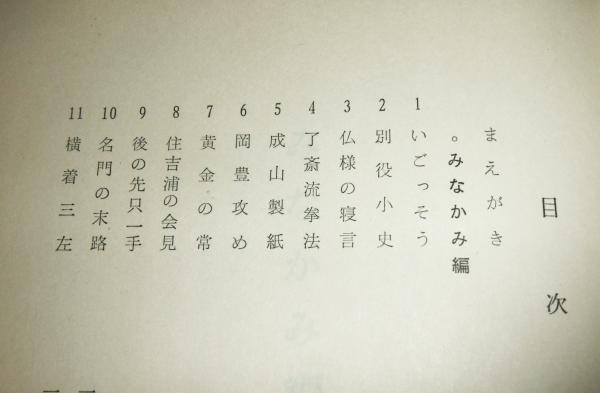 目次
まえがき
。みなかみ編
1 いごっそう
2 別役小史
3 仏様の寝言
4 了斎流拳法
5 成山製紙
6 岡豊攻め
7 黄金の常
8 住吉浦の会見
9 後の先只一手
10 名門の末路
11 横着三左